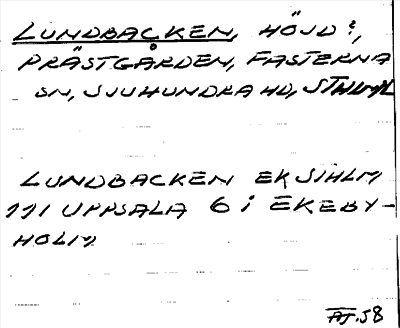 LUNDBACKEN, HÖJD?,
PRÄSTGÅRDEN, FASTERNA
SN, SJUHUNDRA HD, STHLM/L
LUNDBACKEN EKSTHLM
111 UPPSALA 6 I EKEBY-
HOLM
AJ.58